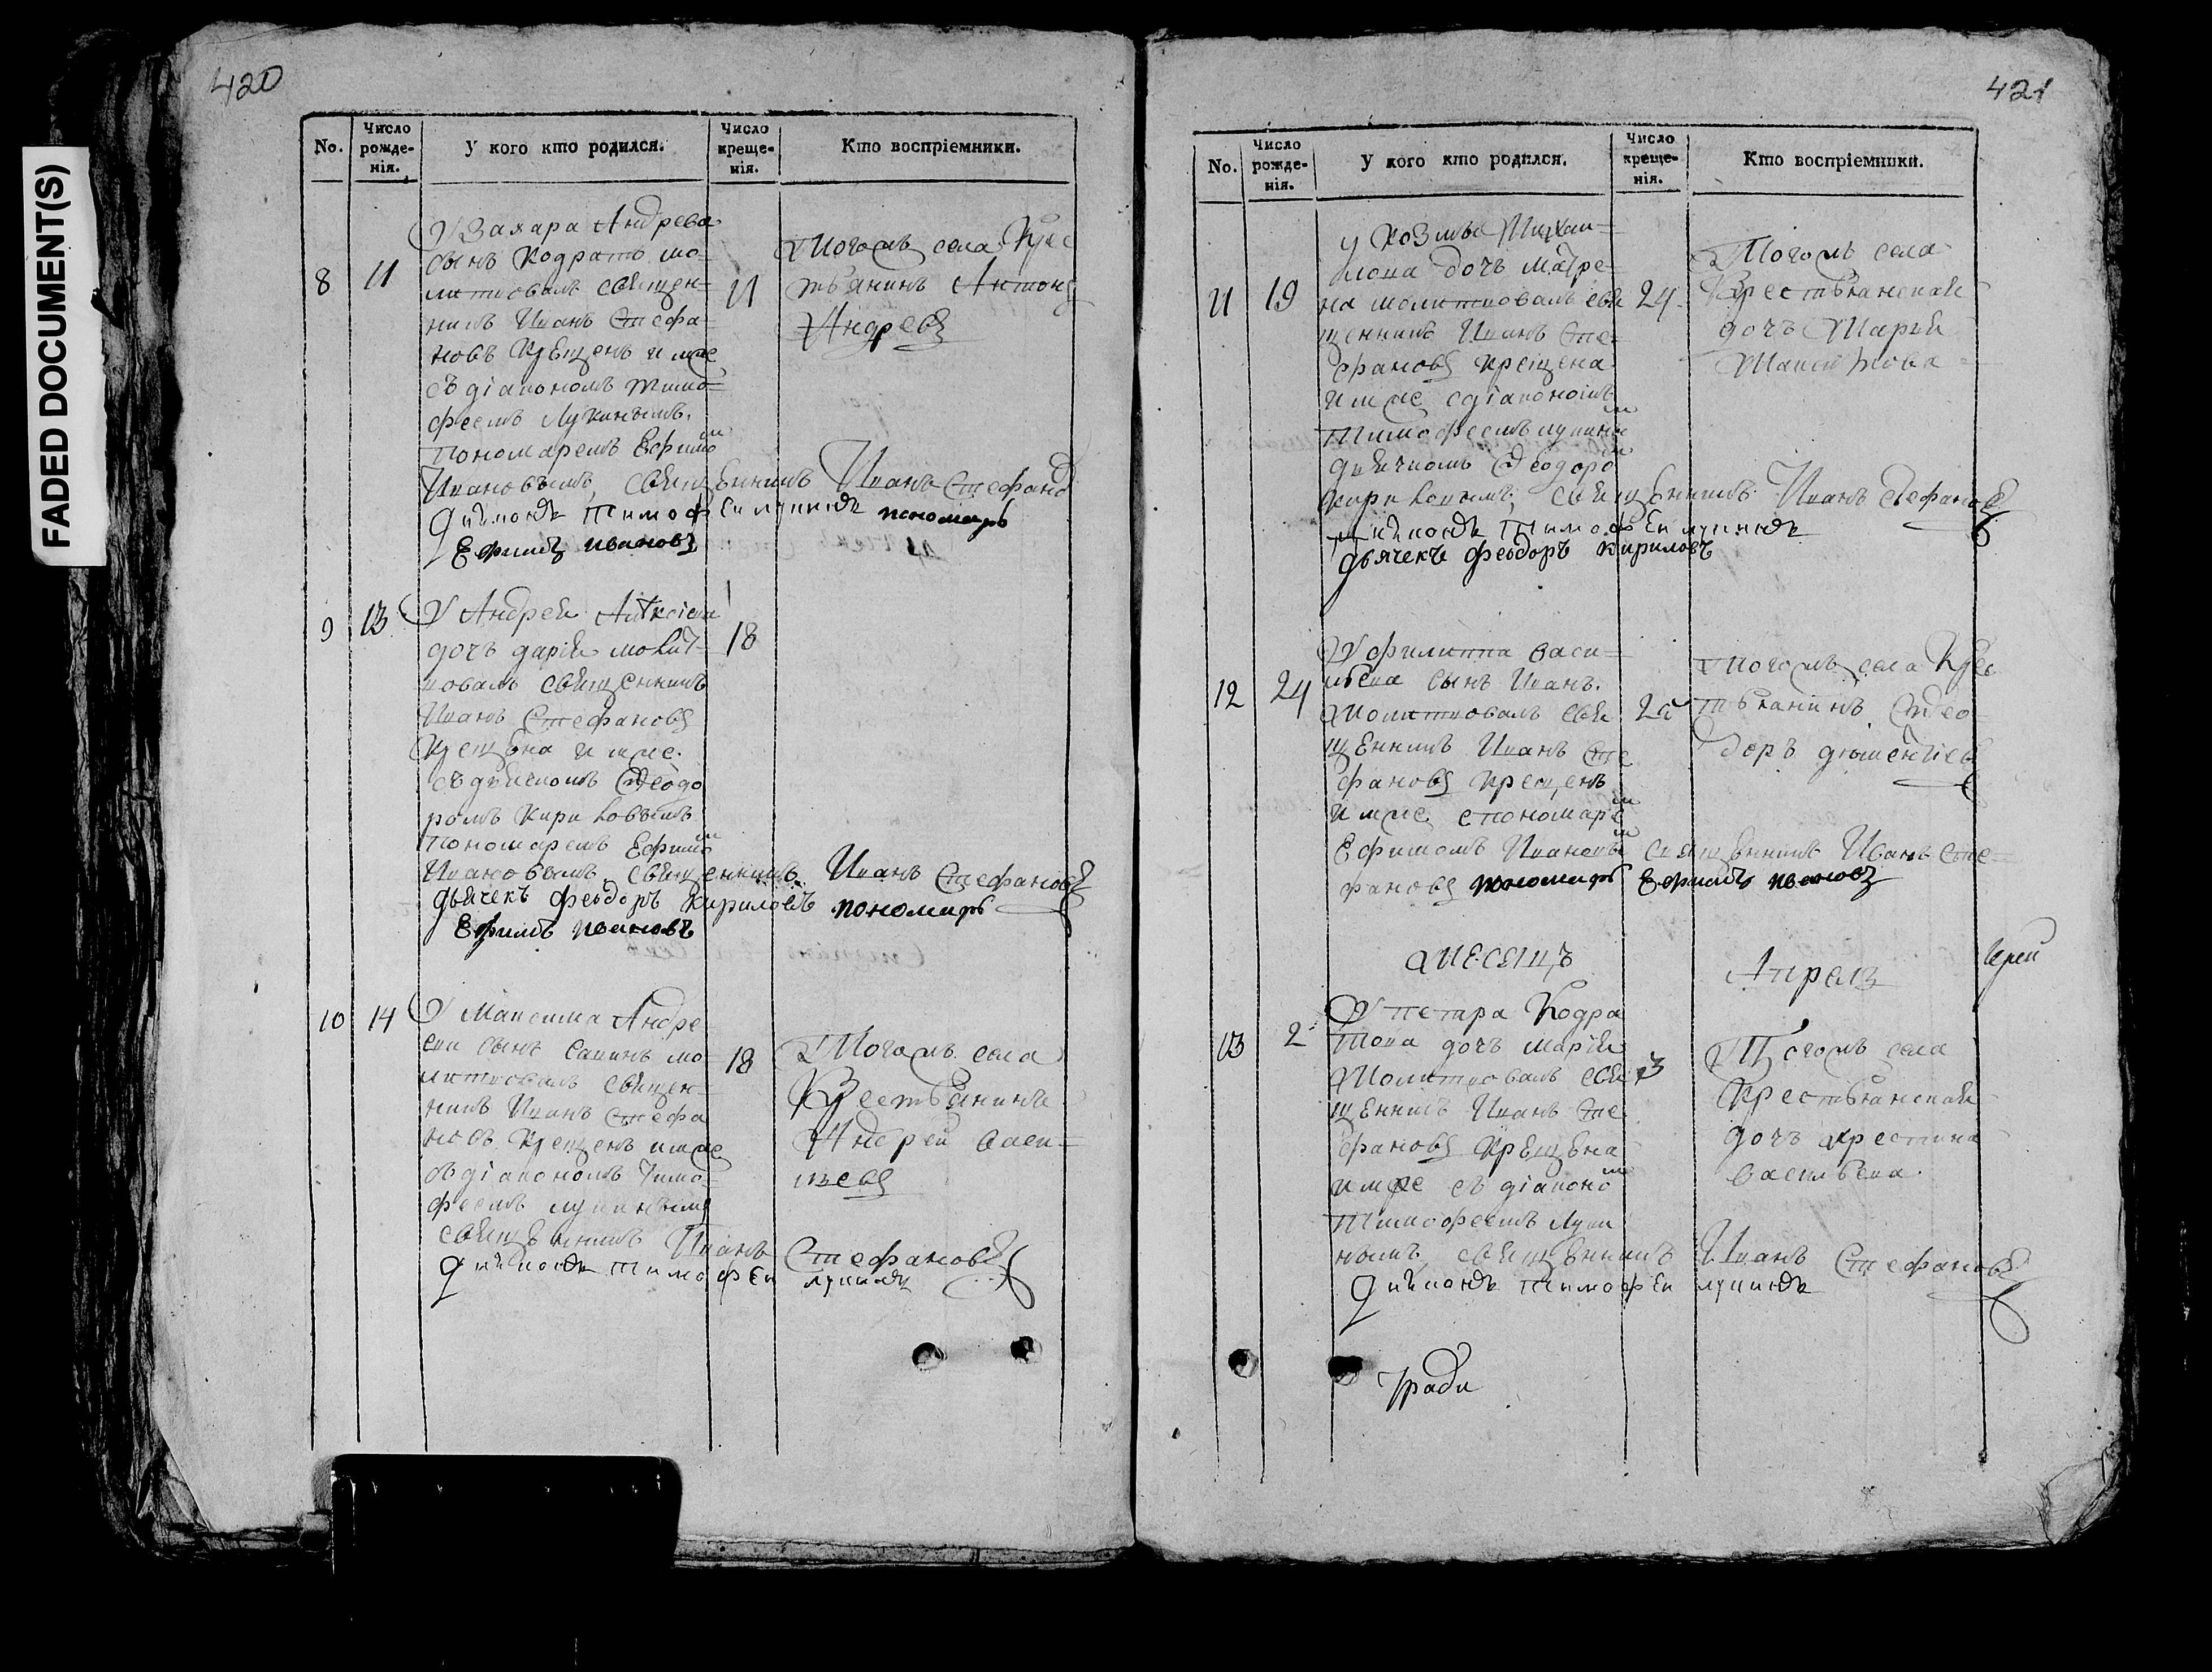 FADED DOCUMENT(S)
420
No.
Число рожде-нія.
У кого кто родился.
Число креще-нія.
Кто воспріемники.
8
11
У Захара Андрева
сынъ Кодратъ мо-
литвовалъ священ-
никъ Иванъ Стефа-
новъ Крещенъ имже
съ діакономъ Тимо-
феемъ Лукинымъ,
пономаремъ Ефимом
Ивановымъ, священникъ Иванъ Стефанов
Диаконъ Тимофеи лукинъ пономарь
Ефимъ Ивановъ
11
Тогожъ села Крес
тьянинъ Антонъ
Андревъ
9
13
У Андрея
дочь дарія молит-
вовалъ священникъ
Иванъ Стефановъ
Крещена имже
съ дьячкомъ Феодо
ромъ Кириловымъ
пономаремъ Ефимом
Ивановымъ, священникъ Иванъ Стефановъ
дьячекъ феодоръ кириловъ пономарь
Ефимъ Ивановъ
18
10
14
У Максима Андре
ева сынъ мо-
литвовалъ священ-
никъ Иванъ Стефа
новъ Крещенъ имже
съ діакономъ Тимо-
феемъ лукинымъ
священникъ Иванъ Стефановъ
Диаконъ Тимофеи лукинъ
18
Тогожъ села
Крестьянинъ
Андрей Васи-
левъ
421
No.
Число рожде-нія.
У кого кто родился.
Число креще-нія.
Кто воспріемники.
11
19
у Козмы Михаи-
лова дочь матре-
на молитвовалъ свя
щенникъ Иванъ Сте-
фановъ крещена
имже сдіакономъ
Тимофеемъ лукиным
дьячкомъ Феодором
кириловымъ, священникъ Иванъ Стефановъ
диаконъ Тимофеи лукинъ
дьячекъ феодоръ кириловъ
24
Тогожъ села
Крестьянская
дочь Марья
12
24
У филиппа васи-
льева сынъ Иванъ.
Молитвовалъ свя
щенникъ Иванъ Сте
фановъ крещенъ
имже спономарем
Ефимомъ Ивановым священникъ Иванъ Сте-
фановъ пономарь Ефимъ ивановъ
25
тогожъ села Крес
тьянинъ Фео
доръ дементіев
месяцъ
Апрель
13
2
У петра Кодра
това дочь марія
Молитвовалъ свя
щенникъ Иванъ Сте
фановъ Крещена
имже съ діаконом
Тимофеемъ Луки
нымъ, священникъ Иванъ Стефановъ
Диаконъ Тимофеи лукинъ
3
Тогожъ села
Крестьянская
дочь крестина
васильева